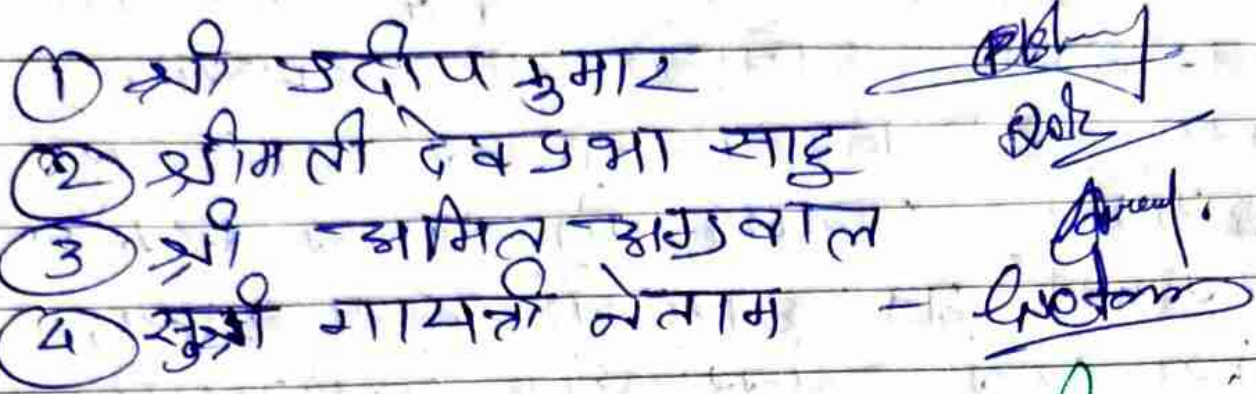 ① श्री प्रदीप कुमार
② श्रीमती देवप्रभा साहु
③ श्री अमित अग्रवाल
④ सुश्री गायत्री नेताम -